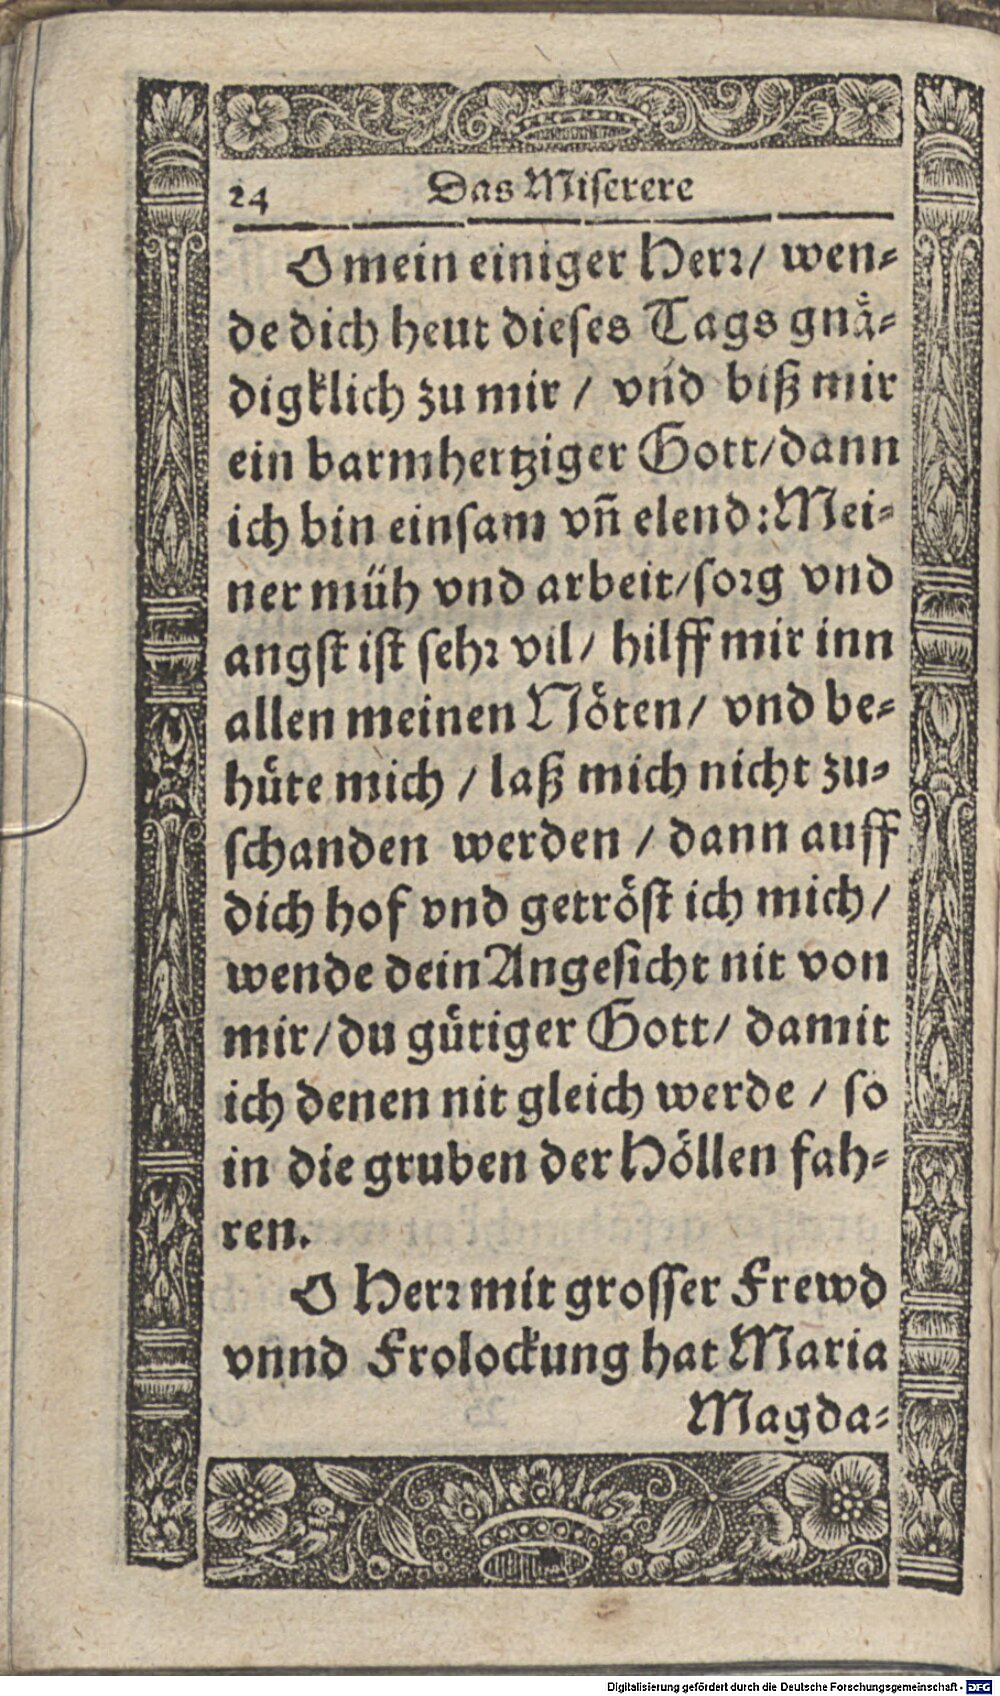 24 Das Miserere
O mein einiger Herr/ wen⸗
de dich heut dieses Tags gnaͤ⸗
digklich zu mir / vnd biß mir
ein barmhertziger Gott/dann
ich bin einsam vñ elend: Mei⸗
ner müh vnd arbeit/sorg vnd
angst ist sehr vil/ hilff mir inn
allen meinen Noͤten/ vnd be⸗
huͤte mich / laß mich nicht zu⸗
schanden werden / dann auff
dich hof vnd getroͤst ich mich/
wende dein Angesicht nit von
mir/du guͤtiger Gott/ damit
ich denen nit gleich werde / so
in die gruben der Hoͤllen fah⸗
ren.
O Herr mit grosser Frewd
vnnd Frolockung hat Maria
Magda⸗
Digitalisierung gefördert durch die Deutsche Forschungsgemeinschaft - DFG